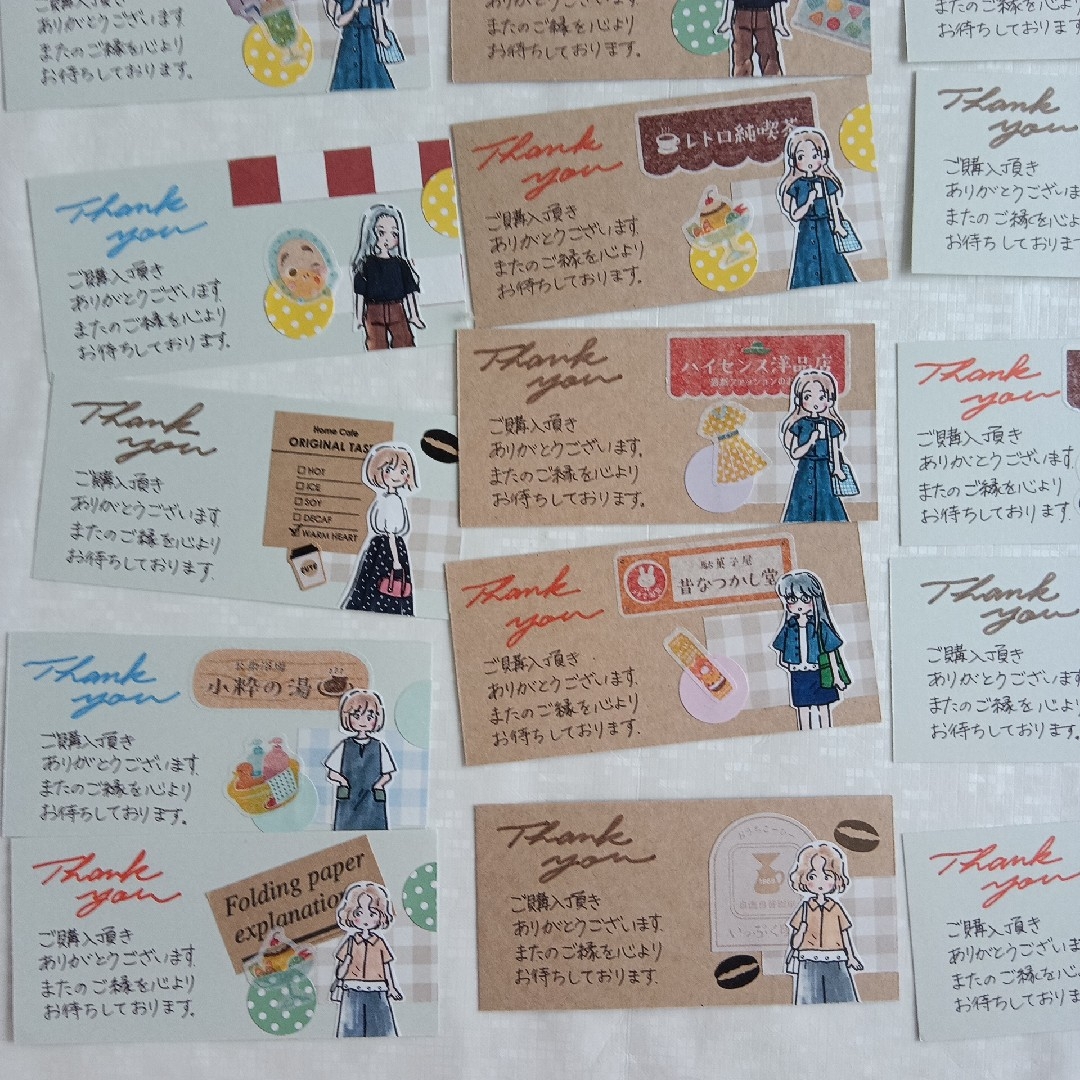 ありがとうございます。
またのご縁を心より
お待ちしております。
Thank
you
ご購入頂き
ありがとうございます。
またのご縁を心より
お待ちしております。
Thank
you
ご購入頂き
ありがとうございます。
またのご縁を心より
お待ちしております。
Home Cafe
ORIGINAL TAS
HOT
ICE
SOY
DECAF
WARM HEART
Thank
you
ご購入頂き
ありがとうございます。
またのご縁を心より
お待ちしております。
小粋の湯
Thank
you
ご購入頂き
ありがとうございます。
またのご縁を心より
お待ちしております。
Folding paper
explanation
ありがとうございます。
またのご縁を心より
お待ちしております。
Thank
you
ご購入頂き
ありがとうございます。
またのご縁を心より
お待ちしております。
レトロ純喫茶
Thank
you
ご購入頂き
ありがとうございます。
またのご縁を心より
お待ちしております。
ハイセンス洋品店
Thank
you
ご購入頂き
ありがとうございます。
またのご縁を心より
お待ちしております。
駄菓子屋
昔なつかし堂
Thank
you
ご購入頂き
ありがとうございます。
またのご縁を心より
お待ちしております。
おうちコーヒー
お待ちしており
Thank
you
ご購入頂き
ありがとうござい
またのご縁を心よ
お待ちしており
Thank
you
ご購入頂き
ありがとうございます
またのご縁を心より
お待ちしております。
Thank
you
ご購入頂き
ありがとうございま
またのご縁を心より
お待ちしております
Thank
you
ご購入頂き
ありがとうございま
またのご縁を心よ
お待ちしておりま